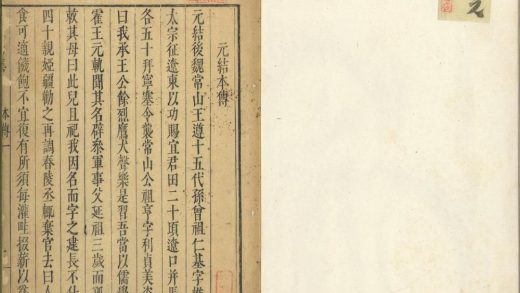 元結本傳
元結後魏常山王遵十五代孫曾祖仁基字惟
太宗征遼東以功賜宜君田二十頃遼口并馬
各五十拜寧塞令襲常山公祖亨字利貞美姿
曰我承王公餘烈鷹犬聲樂是習吾當以儒學
霍王元軌聞其名辟參軍事父延祖三歲而
敕其母曰此兒且祀我因名而字之逮長不仕
四十親婭彊勸之再調舂陵丞輒棄官去曰人
食可適饑飽不宜復有所須每灌畦掇薪以爲
本傳一
元